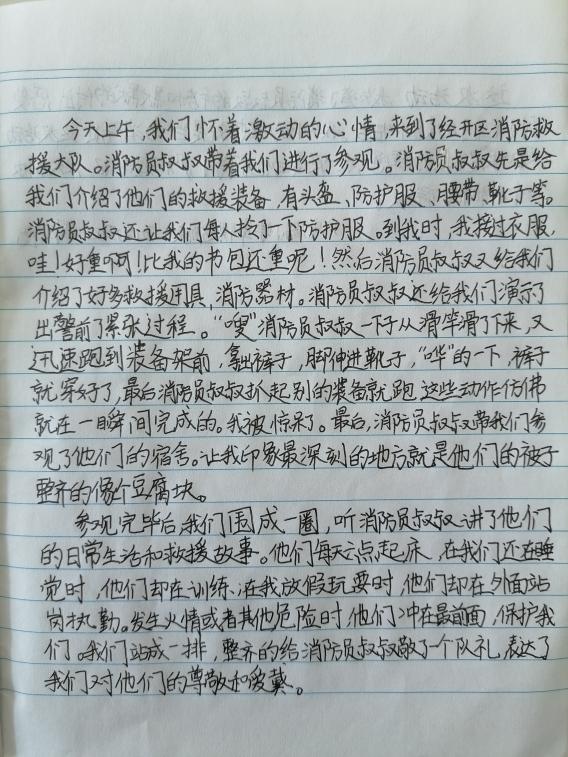 今天上午，我们怀着激动的心情，来到了经开区消防救
援大队。消防员叔叔带着我们进行了参观。消防员叔叔先是给
我们介绍了他们的救援装备，有头盔、防护服、腰带、靴子等。
消防员叔叔还让我们每人拎了一下防护服。到我时，我接过衣服，
哇！好重啊！比我的书包还重呢！然后消防员叔叔又给我们
介绍了好多救援用具，消防器材。消防员叔叔还给我们演示了
出警前了紧张过程。“嗖”消防员叔叔一下子从滑竿滑了下来，又
迅速跑到装备架前，拿出裤子，脚伸进靴子，“哗”的一下，裤子
就穿好了，最后消防员叔叔抓起别的装备就跑，这些动作仿佛
就在一瞬间完成的。我被惊呆了。最后，消防员叔叔带我们参
观了他们的宿舍。让我印象最深刻的地方就是他们的被子
整齐的像个豆腐块。
参观完毕后，我们围成一圈，听消防员叔叔讲了他们
的日常生活和救援故事。他们每天六点起床，在我们还在睡
觉时，他们却在训练、在我放假玩耍时，他们却在外面站
岗执勤。发生火情或者其他危险时，他们冲在最前面，保护我
们。我们站成一排，整齐的给消防员叔叔敬了一个队礼，表达了
我们对他们的尊敬和爱冀。